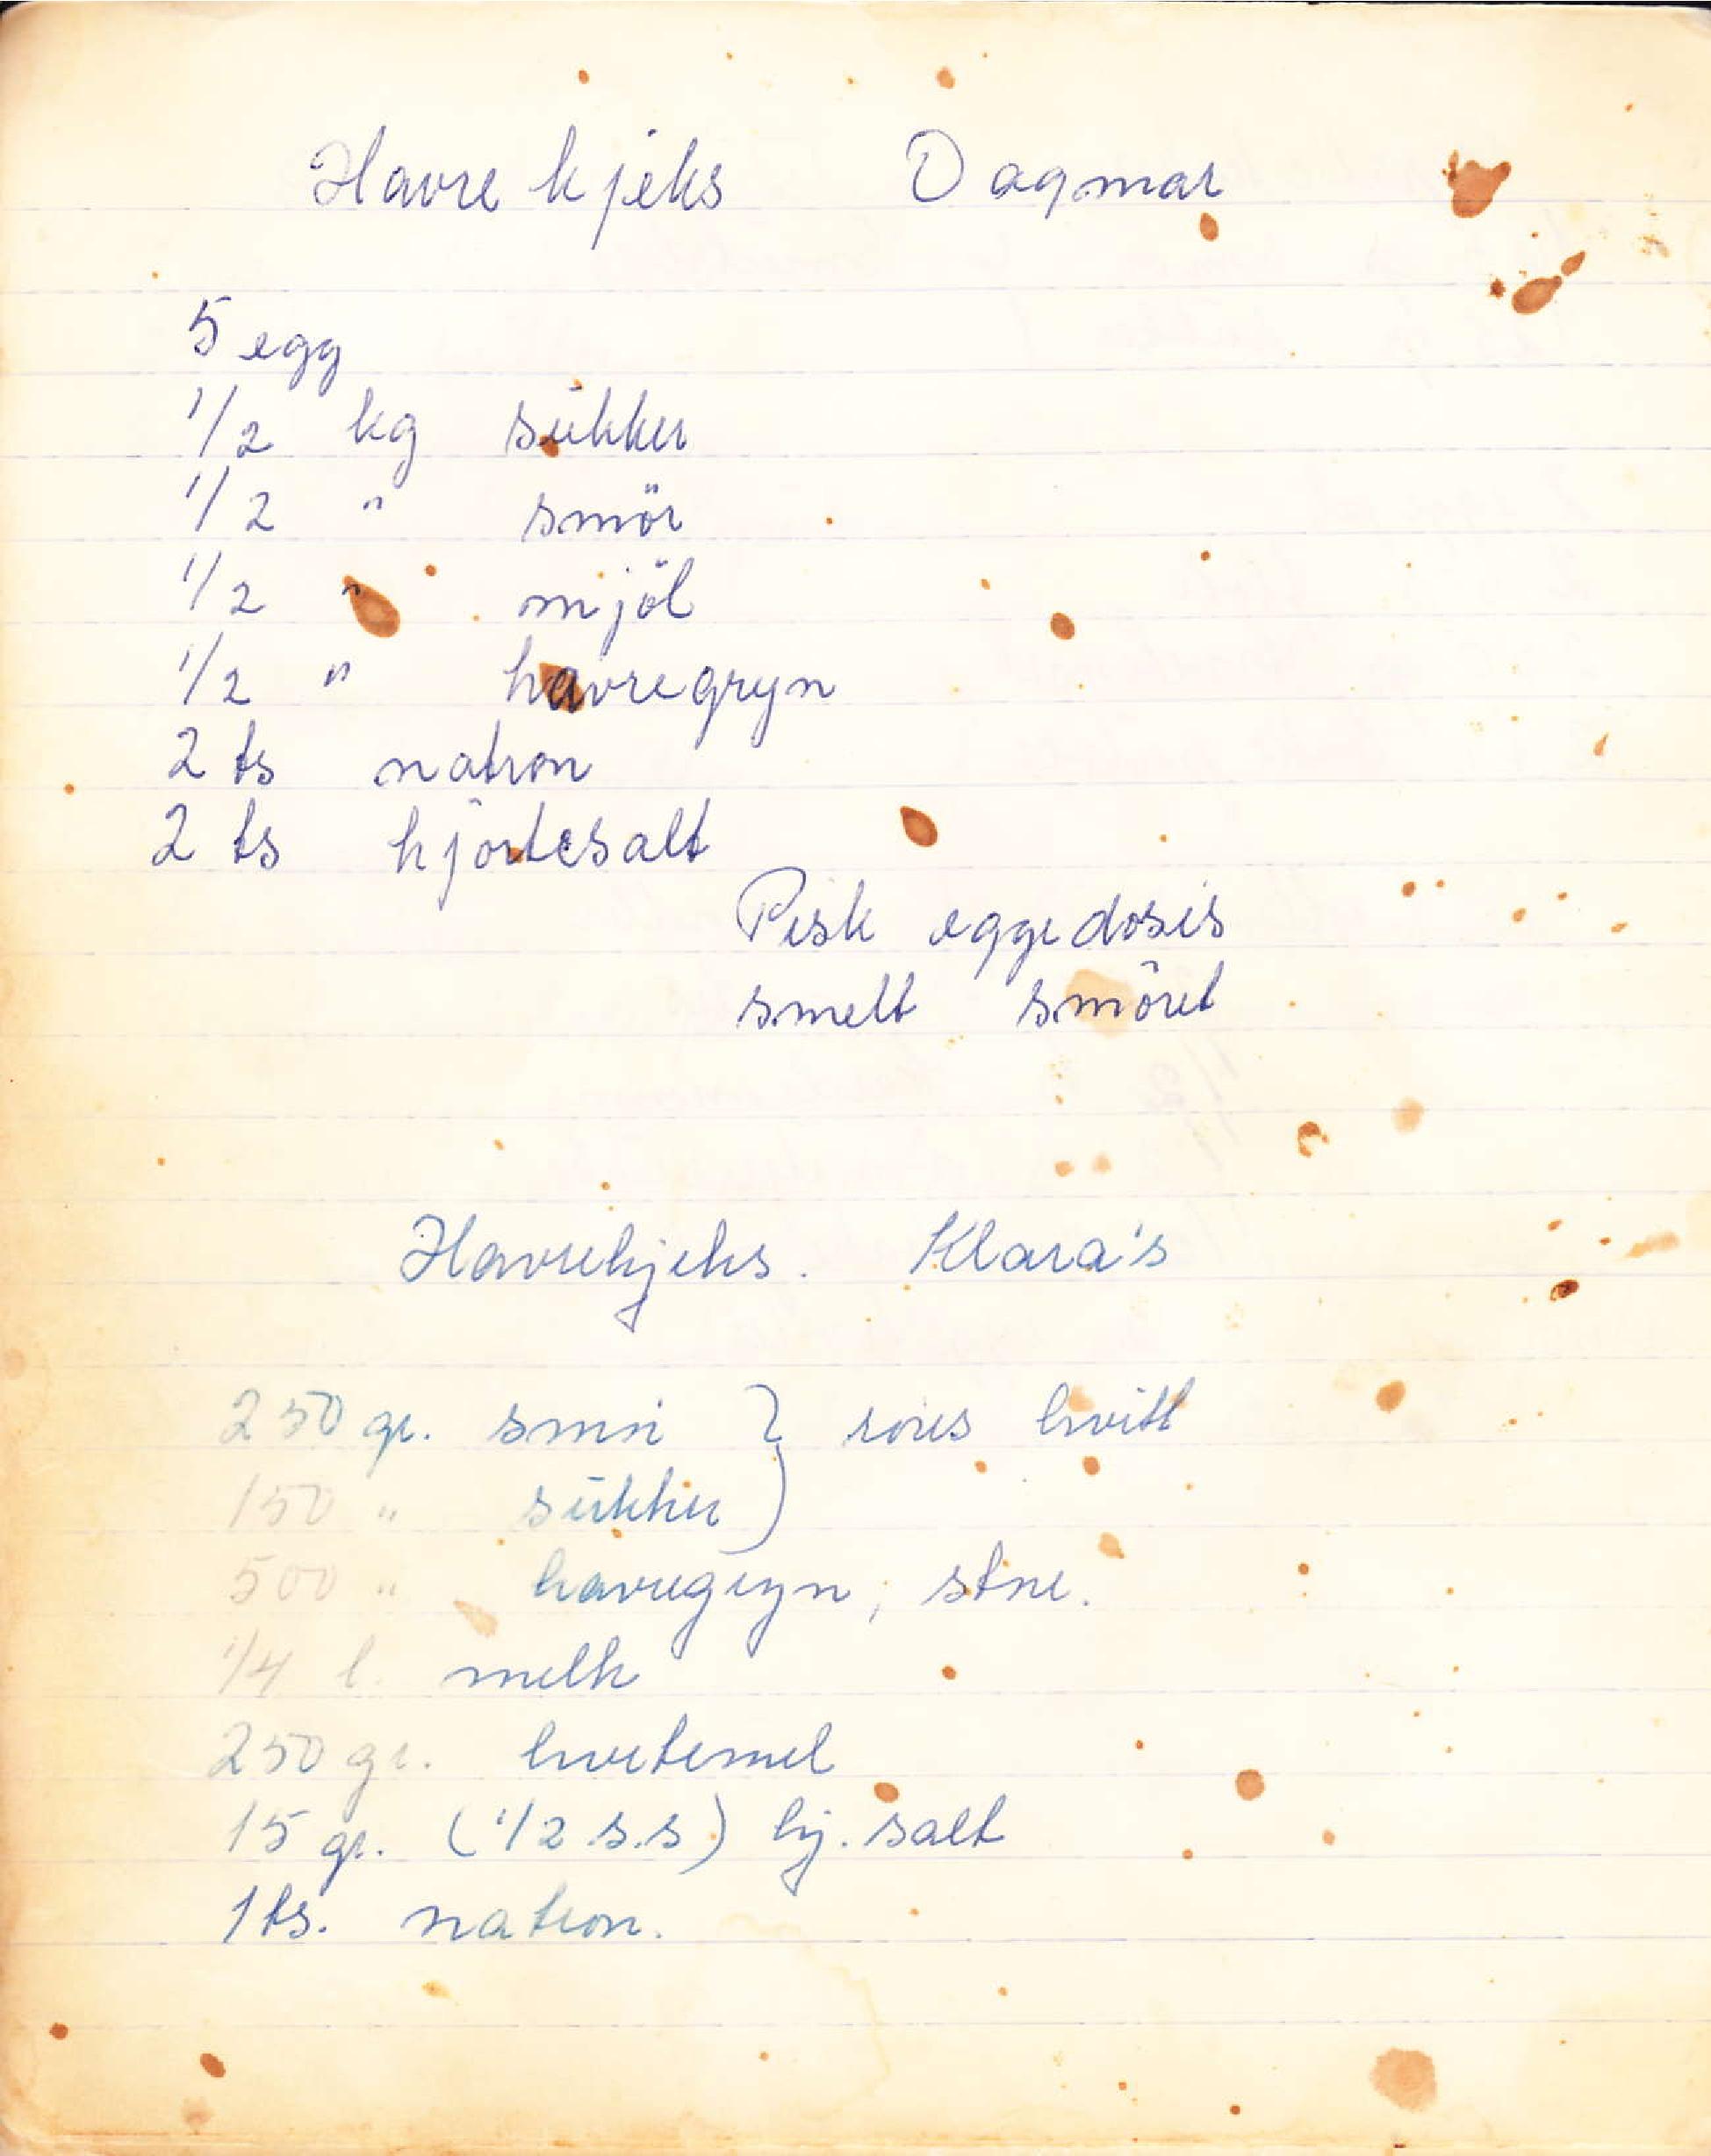 Havre kjeks Dagmar
5 egg
1/2 kg sukker
1/2 " smör
1/2 " mjöl
1/2 " havregryn
2 ts natron
2 ts hjortesalt
Pisk eggedosis
smelt smöret
Havrekjeks. Klara's
250 gr. smør } røres hvitt
150 " sukker
500 " havregryn, støre.
1/4 l. melk
250 gr. hvetemel
15 gr. (1/2 s.s) hj. salt
1 ts. natron.